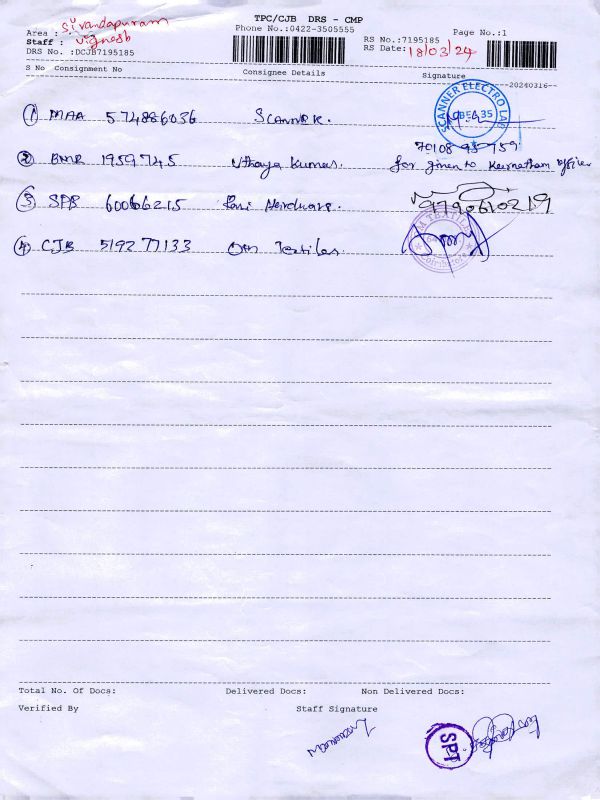 TPC/CJB DRS - CMP
Area : Sivandapuram
Phone No.:0422-3505555
Page No.:1
Staff : Vignesh
RS No.:7195185
DRS No. :DCJB7195185
RS Date: 18/03/24
S No Consignment No Consignee Details Signature
--20240316--
① MAA 574886036 Scanner.
SCANNER ELECTRO LAB
② BMR 1959745 Uthaya Kumar. for given to
③ SPB 60066215 Rani Hardware. 9790610219
④ CJB 519277133 Om Textiles.
OM TEXTILES
Coimbatore
Total No. Of Docs: Delivered Docs: Non Delivered Docs:
Verified By Staff Signature
SPT